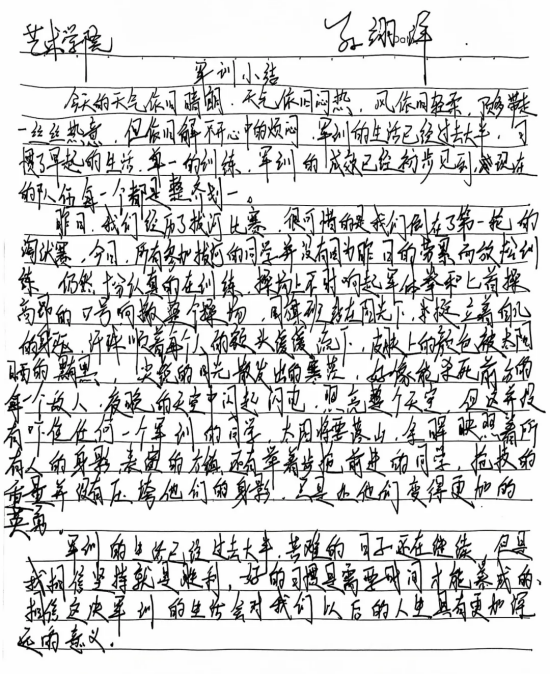 艺术学院 孙翊洋
军训小结
今天的天气依旧晴朗，天气依旧闷热，风依旧轻柔，略带走
一丝丝热意，但依旧解不开心中的烦闷，军训的生活已经过去大半，习
惯了早起的生活，单一的训练，军训的成效已经初步见到，现在
的队伍每一个都是整齐划一。
昨日，我们经历拔河比赛，很可惜的是我们倒在了第一轮的
淘汰赛，今日，所有参加拔河的同学并没有因为昨日的劳累而放松训
练，仍然十分认真的在训练，操场上不时响起军体拳和匕首操
高昂的口号响彻整个操场，阳光下，挺立着他们
的身姿，汗珠顺着每个人的额头缓缓流下，皮肤上的颜色被太阳
晒的黝黑，尖锐的目光散发出的寒芒，好像能杀死前方的
每一个敌人，夜晚的天空中闪起闪电，照亮整个天空，但这并没
有吓住任何一个军训的同学，太阳将要落山，余晖映照着所
有人的身影，还有举着步枪前进的同学，枪枝的
重量并没有压垮他们的身影，而是让他们变得更加的
英勇。
军训的生活已经过去大半，苦难的日子还在继续，但是
我相信坚持就是胜利，好的习惯是需要时间才能养成的，
相信这次军训的生活会对我们以后的人生具有更加深
远的意义。